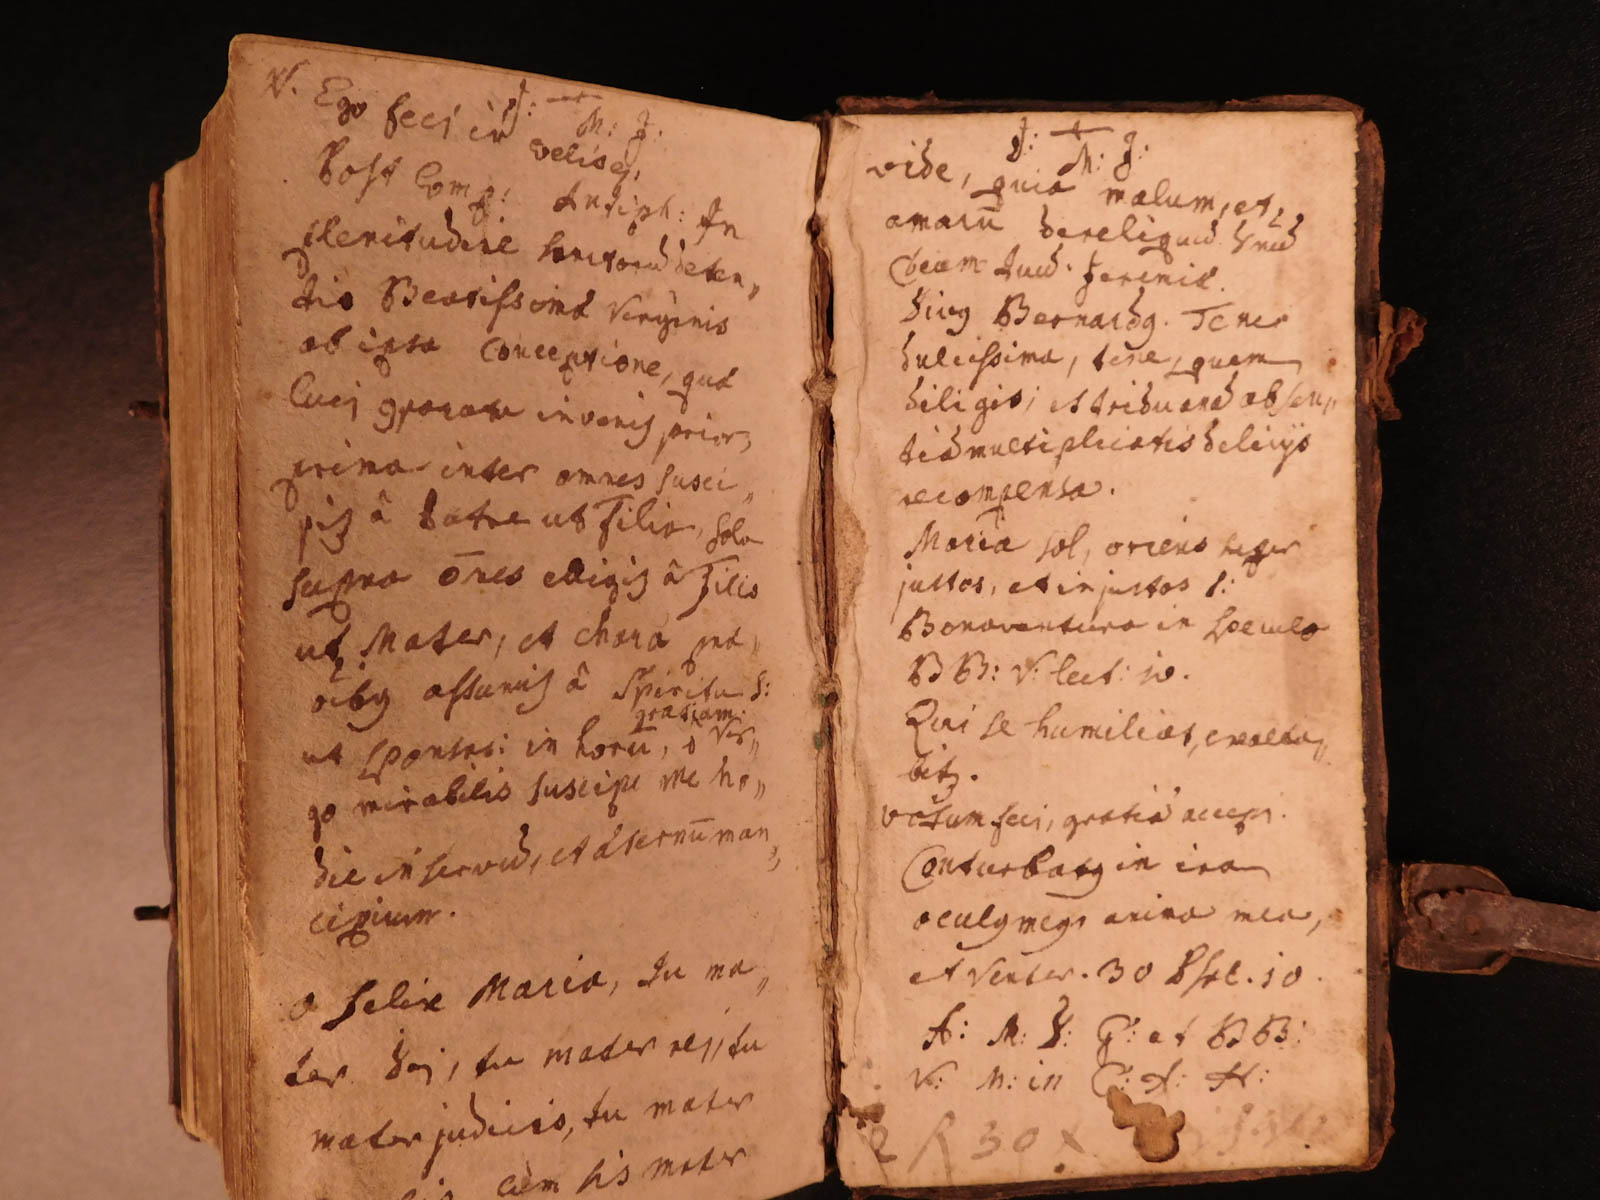 V. Ego feci in velis
J: M: J:
Post Comp: Antiph: In
plenitudine sanctorū deten„
tio Beatissimæ Virginis
ab ipsa Conceptione, quæ
gratiam invenis prior,
prima inter omnes susci„
pis â Patre ut Filia, sola
supra ōnes eligis â Filio
ut Mater, et chara præ
oibq assumis â Spiritu S:
ut sponsa: in horū gratiam: ō Vir„
go mirabilis suscipe me ho„
die in servū, et æternū man„
cipium.
O felix Maria, tu ma„
ter Dei, tu mater rei, tu
mater judicis, tu mater
cùm sis mater
J: M: J:
vide, quia malum, et
amarū dereliquis Dnū
Deum tuū. Jeremiæ.
Divq Bernardq. Tener
dulcissima, tene, quem
diligis; et triduanā absen„
tiā multiplicatis delicÿs
recompensa.
Maria sol, oriens super
justos, et injustos S:
Bonaventura in speculo
BB: V: lect: 10.
Qui se humiliat, exalta„
bitq.
Votum feci, gratiā accepi.
Conturbatq in ira
oculq meq, anima mea,
et venter. 30 Psal. 10.
A: M: D: G: et BB:
V: M: in C: A: H:
R 30 x